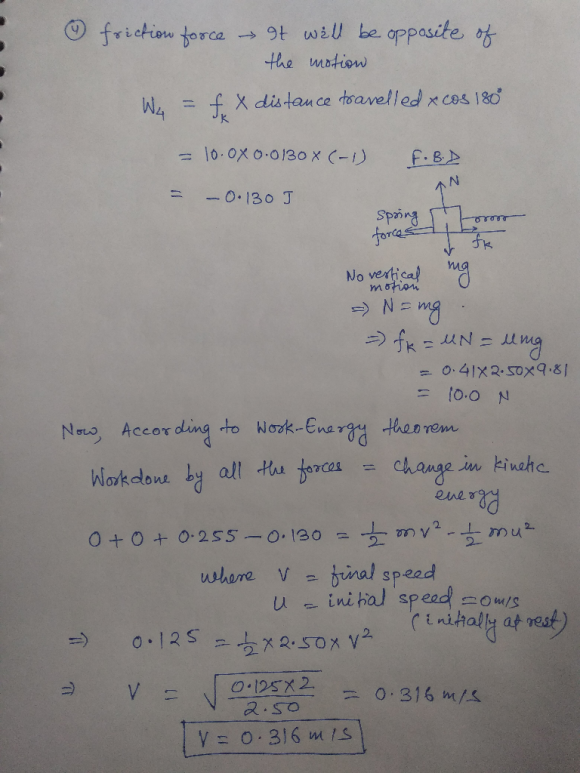 ④ friction force → It will be opposite of
the motion
W₄ = fₖ × distance travelled × cos 180°
= 10.0 × 0.0130 × (-1)
= -0.130 J
F.B.D
N
Spring
force
fₖ
mg
No vertical
motion
⇒ N = mg
⇒ fₖ = μN = μmg
= 0.41×2.50×9.81
= 10.0 N
Now, According to Work-Energy theorem
Workdone by all the forces = change in kinetic
energy
0 + 0 + 0.255 - 0.130 = 1/2 mv² - 1/2 mu²
where V = final speed
u = initial speed = 0 m/s
(initially at rest)
⇒ 0.125 = 1/2 × 2.50 × V²
⇒ V = √(0.125×2 / 2.50) = 0.316 m/s
V = 0.316 m/s